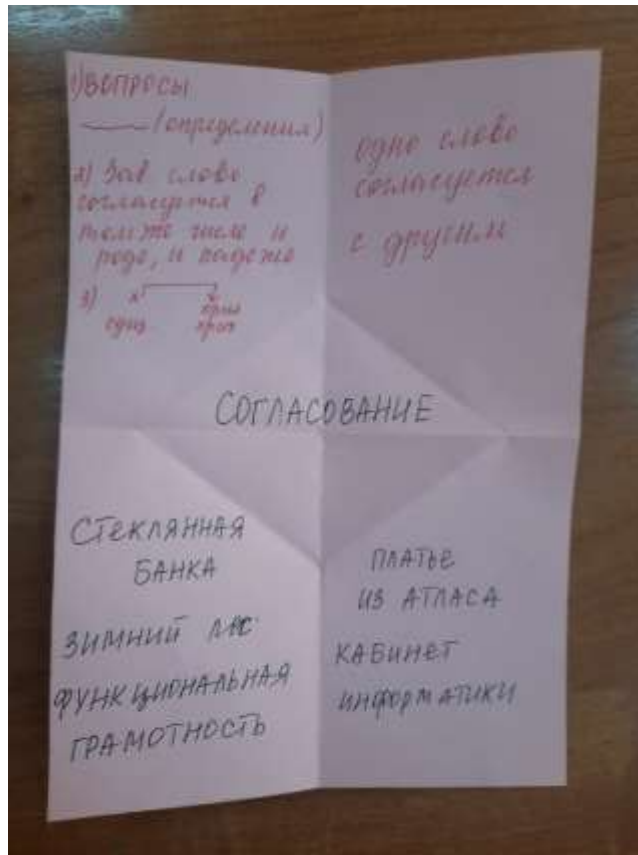 1) ВОПРОСЫ
(определения)
2) Зав слово
согласуется в
том же числе и
роде, и падеже
3) х
сущ прил
прич
одно слово
согласуется
с другим
СОГЛАСОВАНИЕ
СТЕКЛЯННАЯ
БАНКА
ЗИМНИЙ ЛЕС
ФУНКЦИОНАЛЬНАЯ
ГРАМОТНОСТЬ
ПЛАТЬЕ
ИЗ АТЛАСА
КАБИНЕТ
ИНФОРМАТИКИ